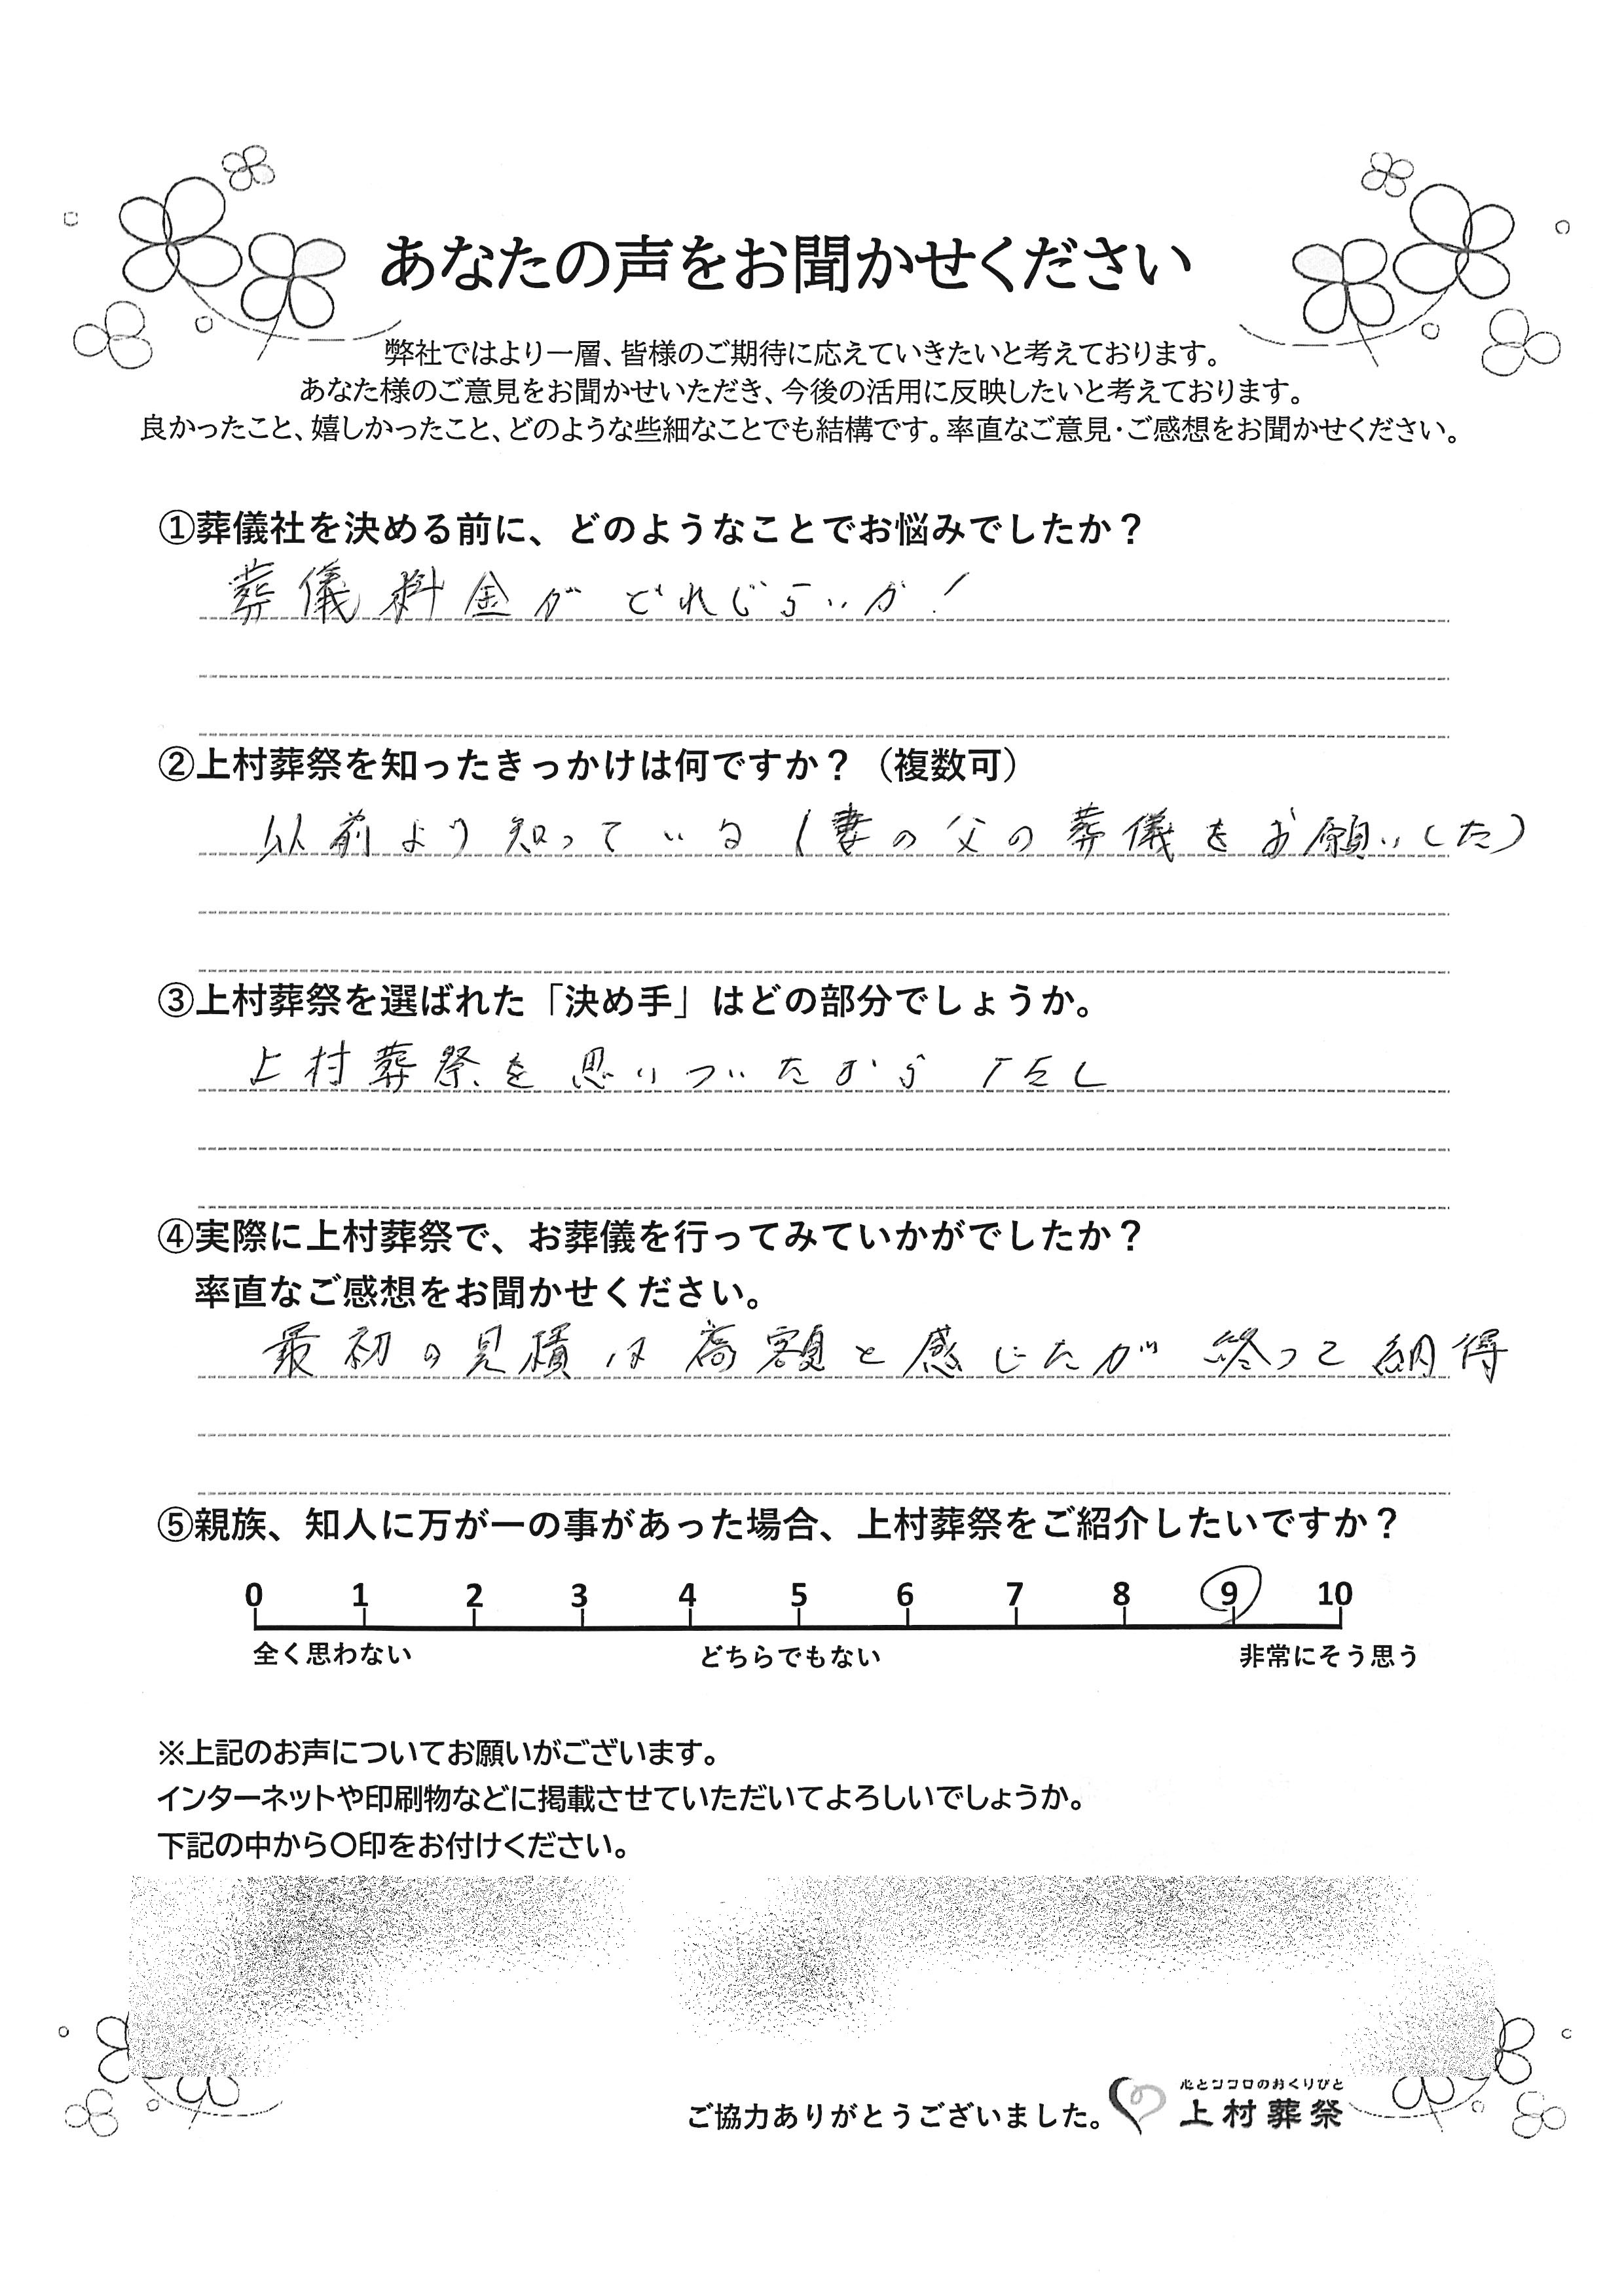 あなたの声をお聞かせください
弊社ではより一層、皆様のご期待に応えていきたいと考えております。
あなた様のご意見をお聞かせいただき、今後の活用に反映したいと考えております。
良かったこと、嬉しかったこと、どのような些細なことでも結構です。率直なご意見・ご感想をお聞かせください。
①葬儀社を決める前に、どのようなことでお悩みでしたか？
葬儀料金がどれぐらいか！
②上村葬祭を知ったきっかけは何ですか？（複数可）
以前より知っている（妻の父の葬儀をお願いした）
③上村葬祭を選ばれた「決め手」はどの部分でしょうか。
上村葬祭を思いついたから TEL
④実際に上村葬祭で、お葬儀を行ってみていかがでしたか？
率直なご感想をお聞かせください。
最初の見積は高額と感じたが 終って納得
⑤親族、知人に万が一の事があった場合、上村葬祭をご紹介したいですか？
0 1 2 3 4 5 6 7 8 9 10
全く思わない どちらでもない 非常にそう思う
※上記のお声についてお願いがございます。
インターネットや印刷物などに掲載させていただいてよろしいでしょうか。
下記の中から〇印をお付けください。
心とココロのおくりびと
ご協力ありがとうございました。 上村葬祭